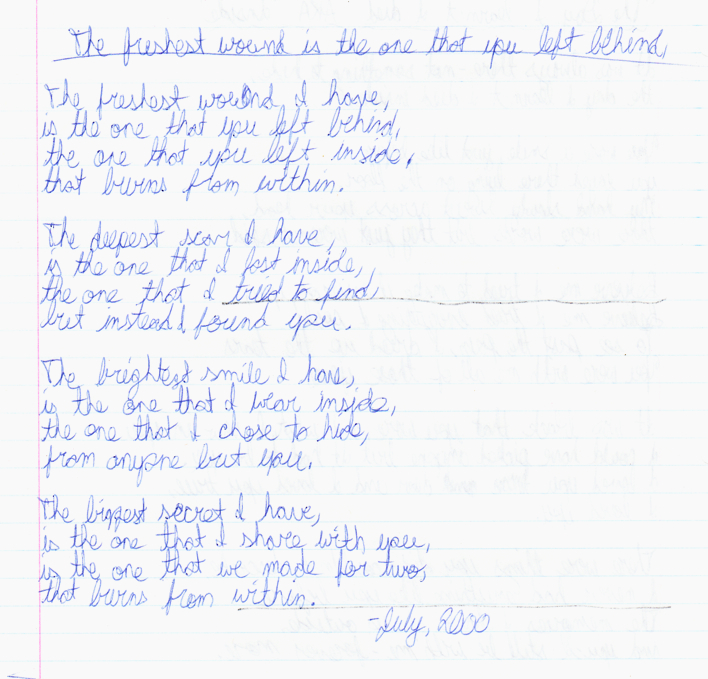 The freshest wound is the one that you left behind,
The freshest wound I have,
is the one that you left behind,
the one that you left inside,
that burns from within.
The deepest scar I have,
is the one that I lost inside,
the one that I tried to find,
but instead I found you.
The brightest smile I have,
is the one that I wear inside,
the one that I chose to hide,
from anyone but you.
The biggest secret I have,
is the one that I share with you,
is the one that we made for two,
that burns from within.
-July, 2000